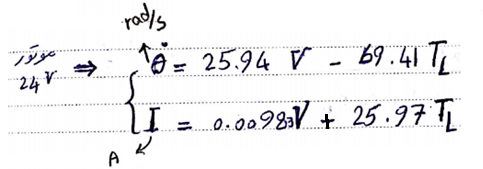 rad/s
موتور 24 V ⇒ { θ̇ = 25.94 V - 69.41 T_L
I = 0.00983V + 25.97 T_L
A